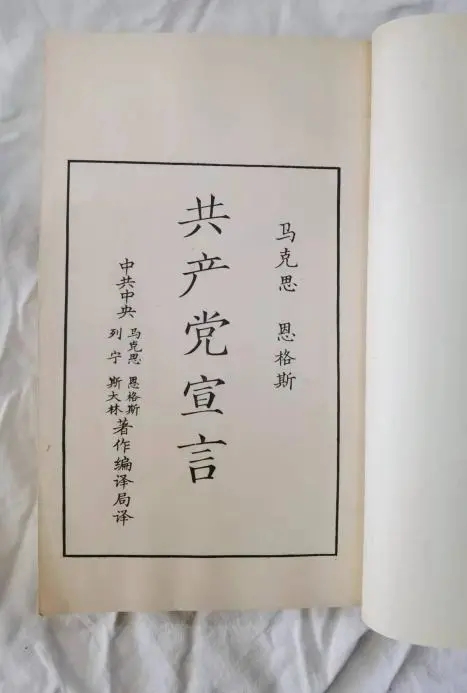 马克思 恩格斯
共产党宣言
中共中央 马克思 恩格斯 列宁 斯大林 著作编译局译